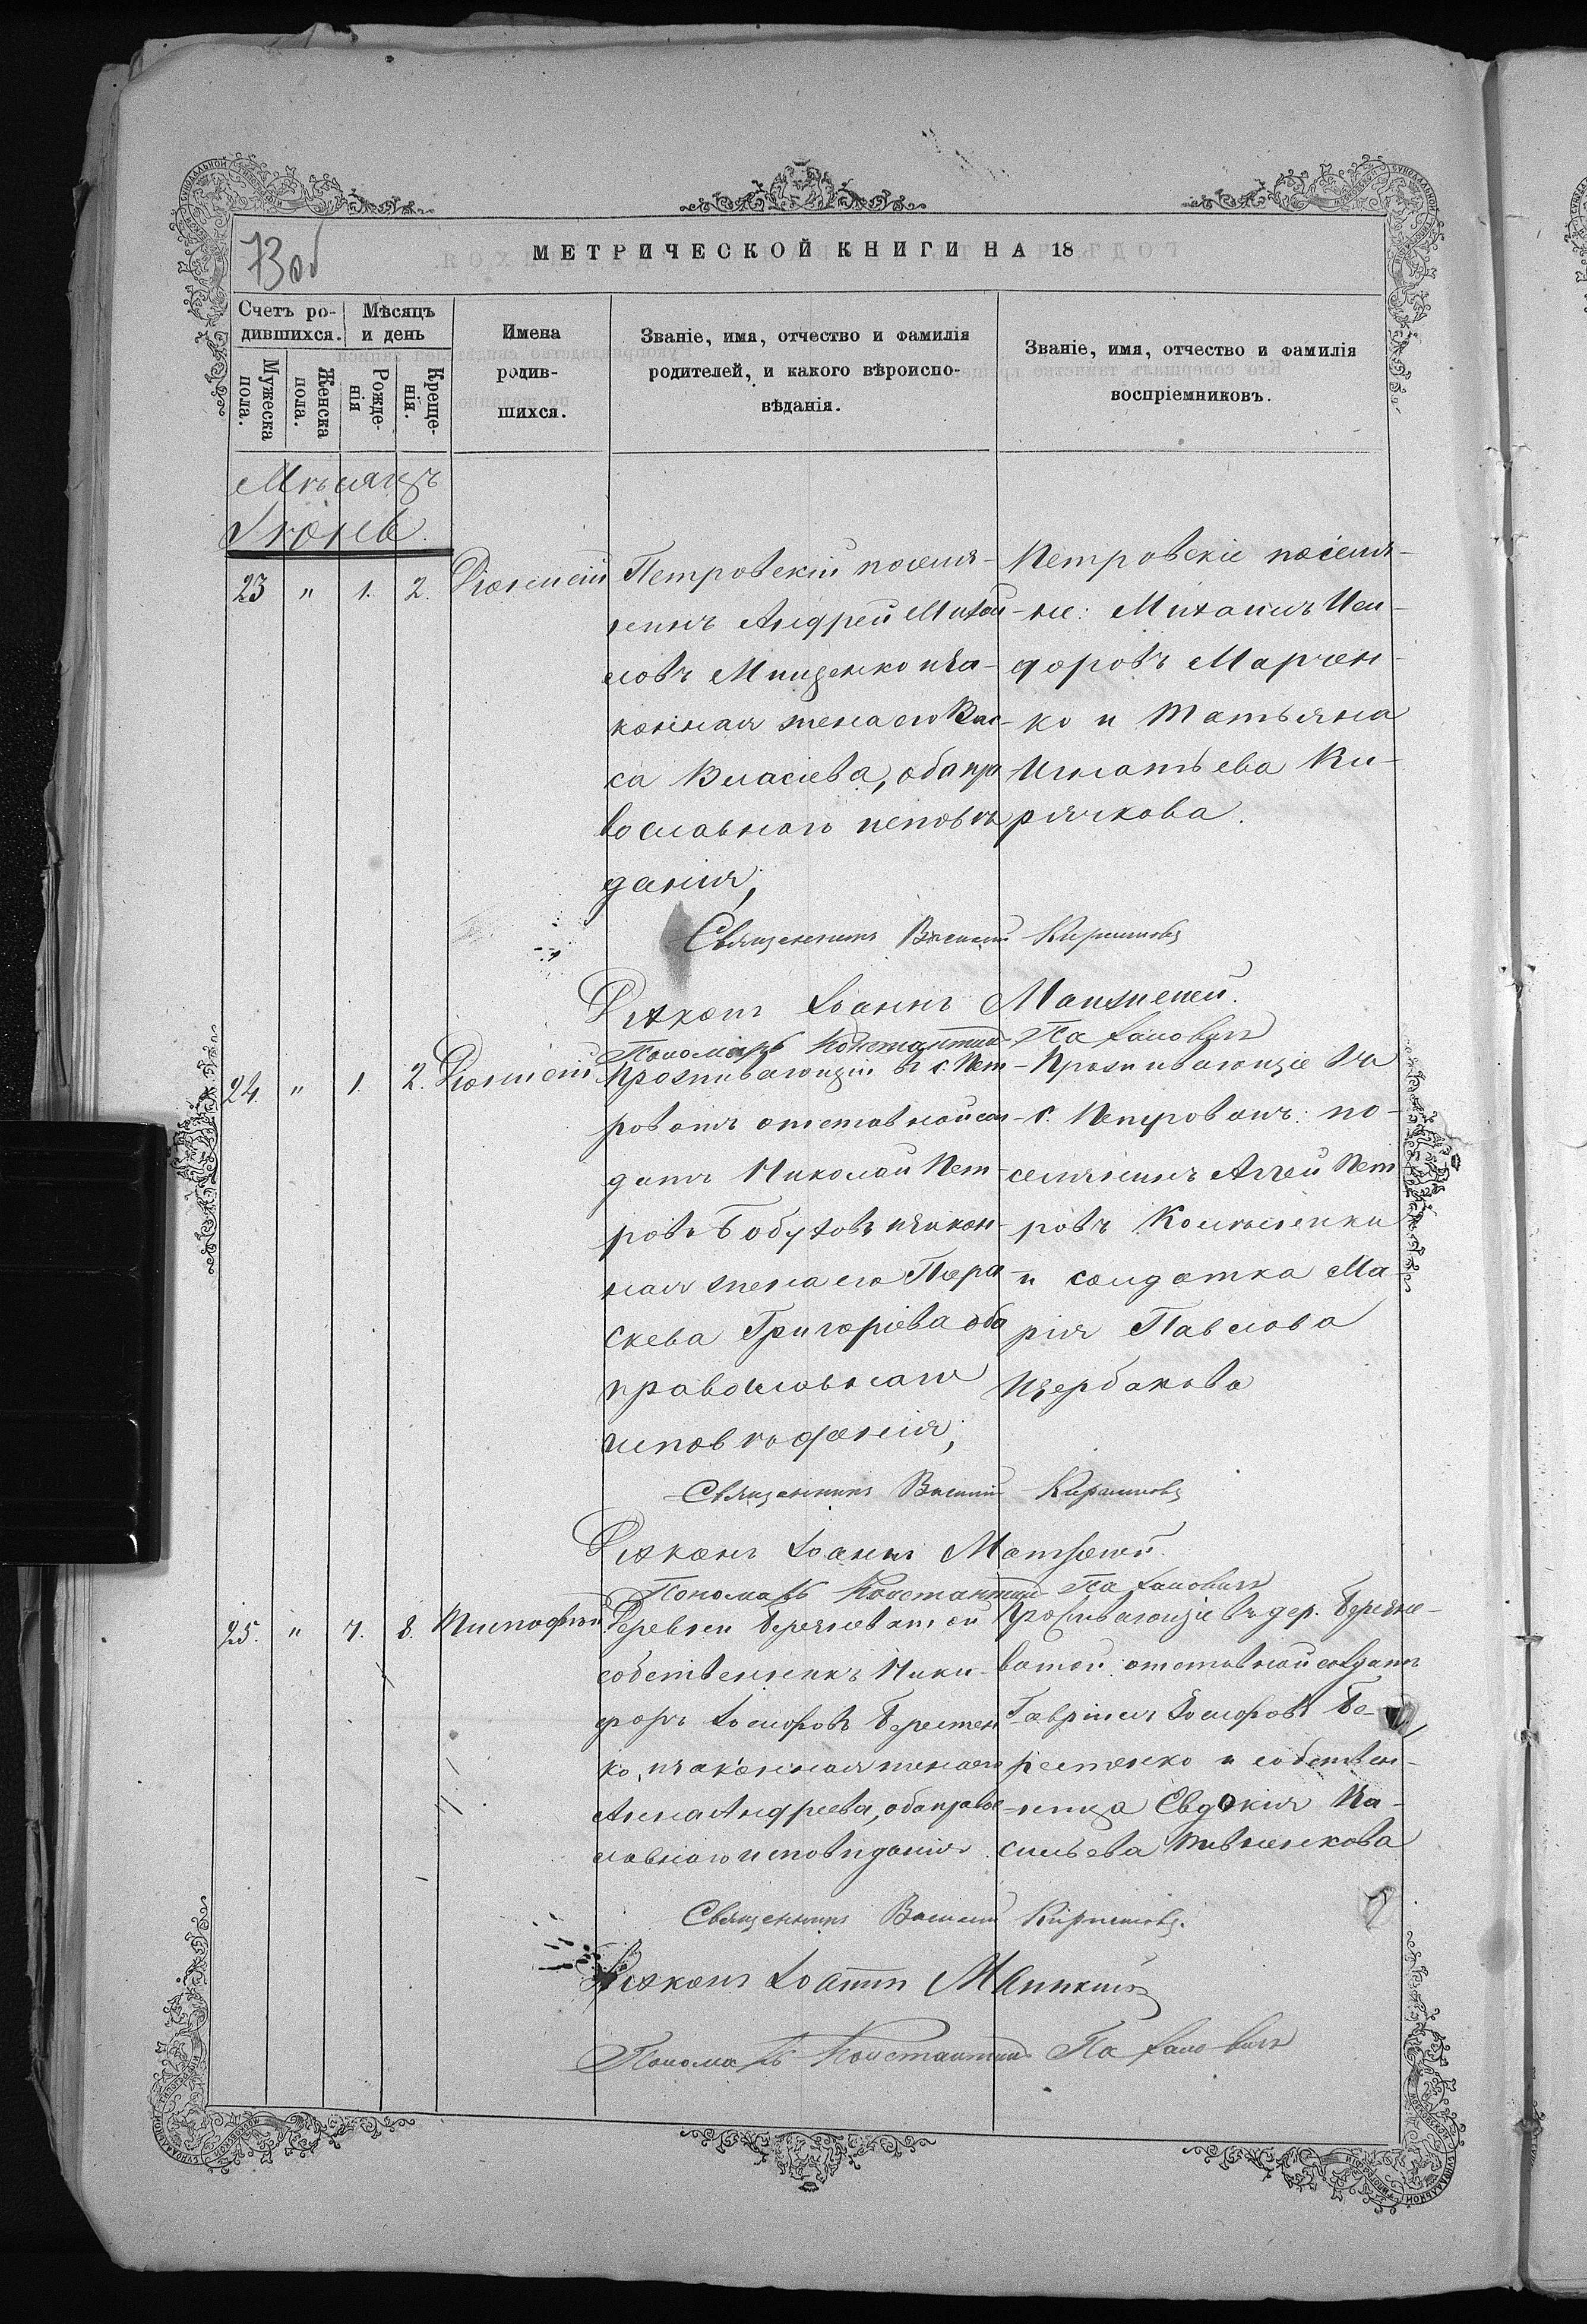 73 об
МЕТРИЧЕСКОЙ КНИГИ НА 18
Счетъ ро-
дившихся.
Мужеска
пола.
Женска
пола.
Мѣсяцъ
и день
Рожде-
нія
Креще-
нія.
Имена
родив-
шихся.
Званіе, имя, отчество и фамилія
родителей, и какого вѣроиспо-
вѣданія.
Званіе, имя, отчество и фамилія
воспріемниковъ.
Мѣсяцъ
Іюнь.
23 " 1. 2. Діонисій
Петровскій поселя-
нинъ Андрей Михаи
ловъ Мищенко и за-
конная жена его Вас-
са Власіева, оба пра
вославнаго исповѣ
данія;
Петровскіе поселя-
не: Михаилъ Иси-
доровъ Марчен-
ко и Татьяна
Игнатьева Ки-
рячкова.
Священникъ Василій Кирилловъ
Діаконъ Іоаннъ
Пономарь Константинъ
24. " 1. 2. Діонисій
Проживающій въ с. Пет-
ровомъ отставной сол-
датъ Николай Пет-
ровъ Бобуховъ и закон-
ная жена его Пара
скева Григоріева оба
православнаго
исповѣданія;
Проживающіе въ
с. Петровомъ: по-
селянинъ Аггей Пет
ровъ
и солдатка Ма-
рія Павлова
Щербакова
Священникъ Василій Кирилловъ
Діаконъ Іоаннъ
Пономарь Константинъ
25. " 7. 8. Тимофей
Деревни Берестоватой
собственникъ Ники-
форъ Іосифовъ Берестен
ко, и законная жена его
Анна Андреева, оба право-
славнаго исповѣданія.
Проживающіе въ дер. Бересто-
ватой: отставной солдатъ
Гавріилъ Іосифовъ Бе-
рестенко и собствен-
ница Евдокія Ва-
сильева
Священникъ Василій Кирилловъ.
Діаконъ Іоаннъ
Пономарь Константинъ